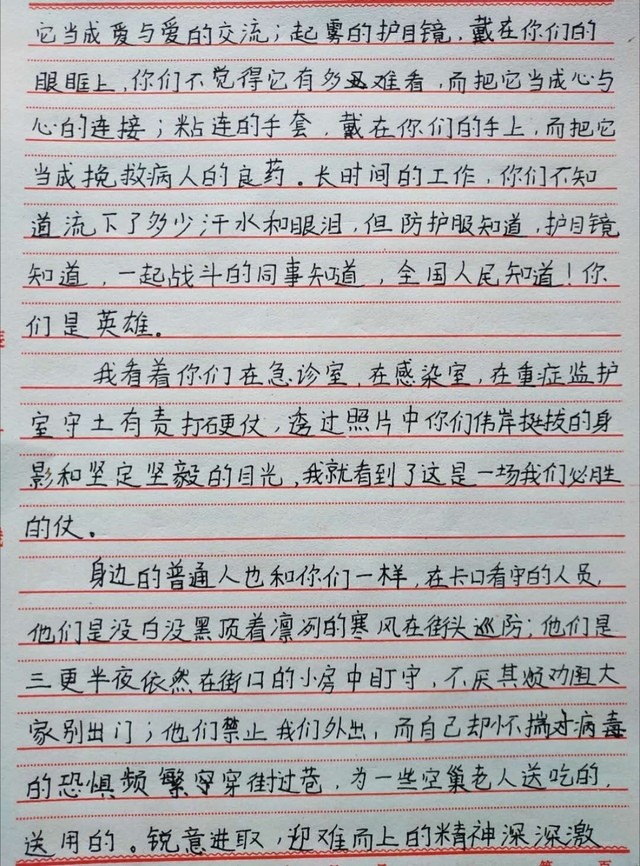 它当成爱与爱的交流；起雾的护目镜，戴在你们的
眼眶上，你们不觉得它有多丑难看，而把它当成心与
心的连接；粘连的手套，戴在你们的手上，而把它
当成挽救病人的良药。长时间的工作，你们不知
道流下了多少汗水和眼泪，但防护服知道，护目镜
知道，一起战斗的同事知道，全国人民知道！你
们是英雄。
我看着你们在急诊室，在感染室，在重症监护
室守土有责打硬仗，透过照片中你们伟岸挺拔的身
影和坚定坚毅的目光，我就看到了这是一场我们必胜
的仗。
身边的普通人也和你们一样，在卡口看守的人员，
他们是没白没黑顶着凛冽的寒风在街头巡防；他们是
三更半夜依然在街口的小房中盯守，不厌其烦劝阻大
家别出门；他们禁止我们外出，而自己却怀揣对病毒
的恐惧频繁穿街过巷，为一些空巢老人送吃的，
送用的。锐意进取，迎难而上的精神深深激